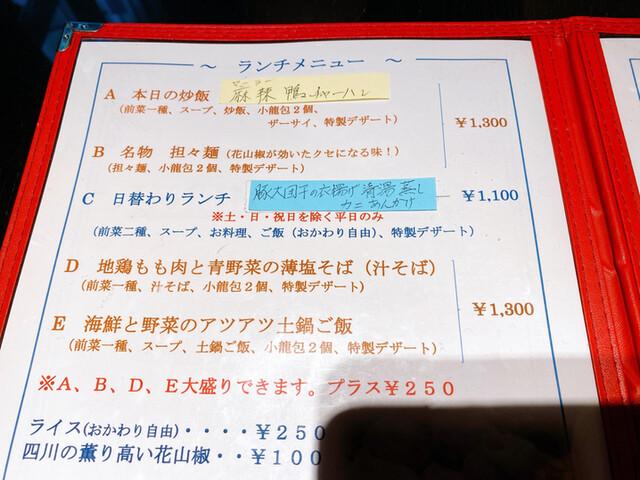 ～ ランチメニュー ～
A 本日の炒飯 麻辣 鴨チャーハン
マーラー
(前菜一種、スープ、炒飯、小龍包2個、
ザーサイ、特製デザート)
￥1,300
B 名物 担々麺 (花山椒が効いたクセになる味！)
(担々麺、小龍包2個、特製デザート)
C 日替わりランチ 豚大団子の衣揚げ 清湯蒸し
カニあんかけ
￥1,100
※土・日・祝日を除く平日のみ
(前菜二種、スープ、お料理、ご飯（おかわり自由）、特製デザート)
D 地鶏もも肉と青野菜の薄塩そば（汁そば）
(前菜一種、汁そば、小龍包2個、特製デザート)
￥1,300
E 海鮮と野菜のアツアツ土鍋ご飯
(前菜一種、スープ、土鍋ご飯、小龍包2個、特製デザート)
※A、B、D、E大盛りできます。プラス￥250
ライス(おかわり自由)・・・・￥250
四川の薫り高い花山椒・・￥100